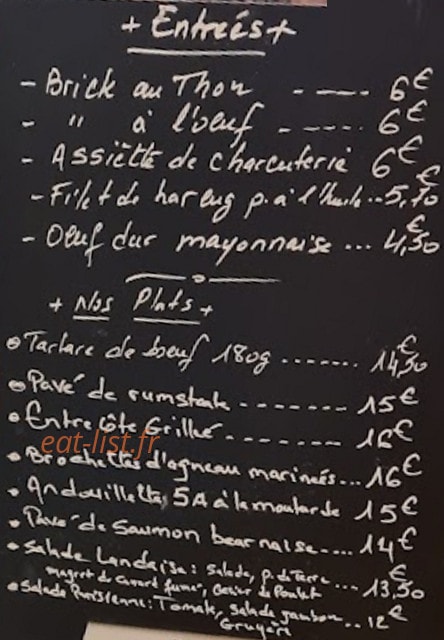 + Entreés +
- Brick au Thon ----- 6€
- " à l'oeuf ----- 6€
- Assiètte de charcuterie 6€
- Filet de hareng p. à l'huile .. 5,10€
- Oeuf dur mayonnaise ... 4,50€
+ Nos Plats +
Tartare de boeuf 180g ....... 14,50€
Pavé de rumsteak -------- 15€
Entrecôte Grillée -------- 16€
eat-list.fr
Brochettes d'agneau marineés ... 16€
Andouillettes 5A à la moutarde 15€
Pavé de Saumon bearnaise..... 14€
Salade Landaise: Salade, p. de Terre ... 13,50€
magret de canard fumé, Gesier de Poulet
Salade Parisienne: Tomate, salade jambon .. 12€
Gruyère